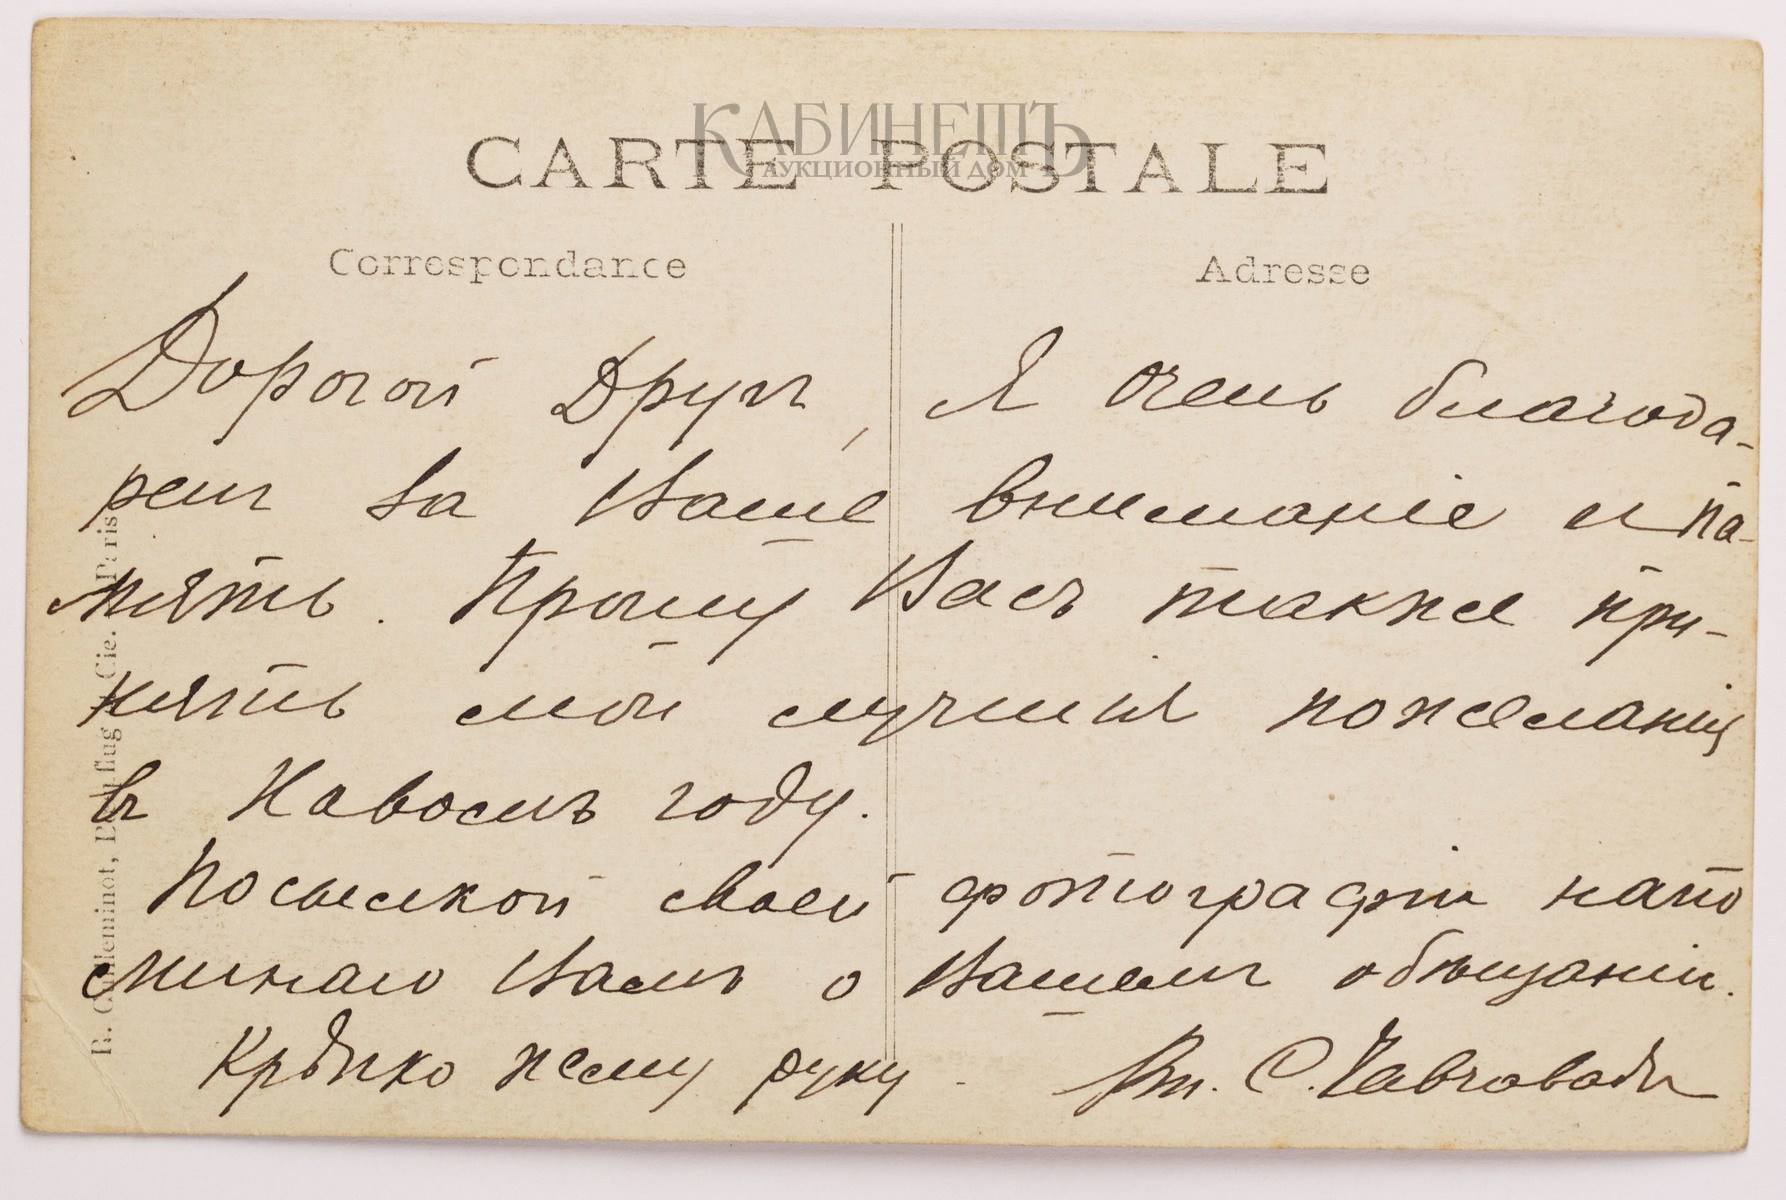 КАБИНЕТЪ
АУКЦИОННЫЙ ДОМ
CARTE POSTALE
Correspondance
Adresse
Дорогой Другъ, Я очень благода-
ренъ за Ваше вниманіе и па-
мять. Прошу Васъ также при-
нять мои лучшія пожеланія
въ Новомъ году.
Посылкой своей фотографіи напо
минаю Вамъ о Вашемъ обѣщаніи.
Крѣпко жму руку. Кн. С. Чавчавадзе
R. Guilleminot, Bœspflug et Cie. Paris